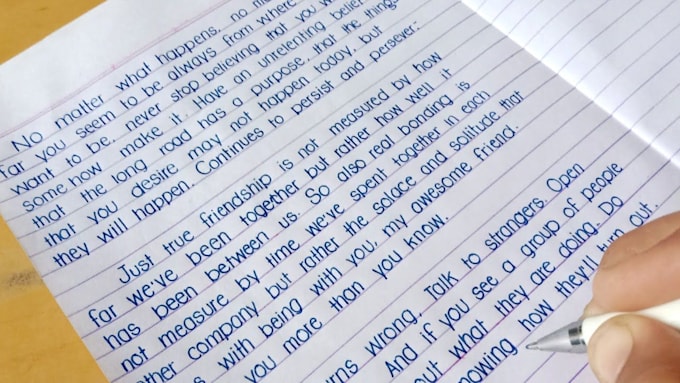 No matter what happens, no
far you seem to be always from where
want to be, never stop believing that you
some how make it. Have an unrelenting
that the long road has a purpose, that the things
that you desire may not happen today, but
they will happen. Continues to persist and persever-
Just true friendship is not measured by how
far we've been together but rather how well it
has been between us. So also real bonding is
not measure by time we've spent together in each
other company but rather the solace and solitude that
with being with you, my awesome friend.
you more than you know.
wrong, Talk to strangers. Open
And if you see a group of people
what they are doing. Do
how they'll turn out.